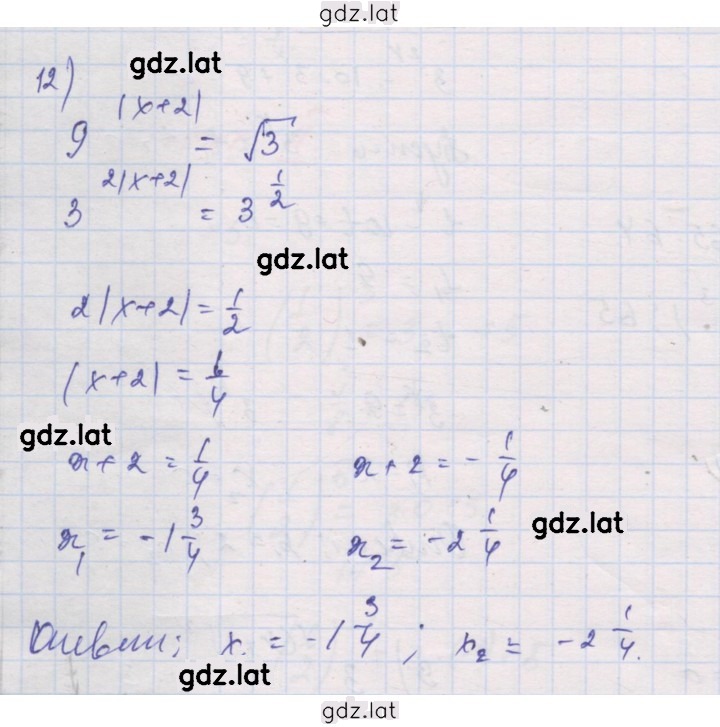 gdz.lat
gdz.lat
12)
9^|x+2| = √3
3^2|x+2| = 3^1/2
gdz.lat
2|x+2| = 1/2
|x+2| = 1/4
gdz.lat
x+2 = 1/4 x+2 = - 1/4
x₁ = -1 3/4 x₂ = -2 1/4
gdz.lat
Ответ: x = -1 3/4 ; x₂ = -2 1/4.
gdz.lat
gdz.lat